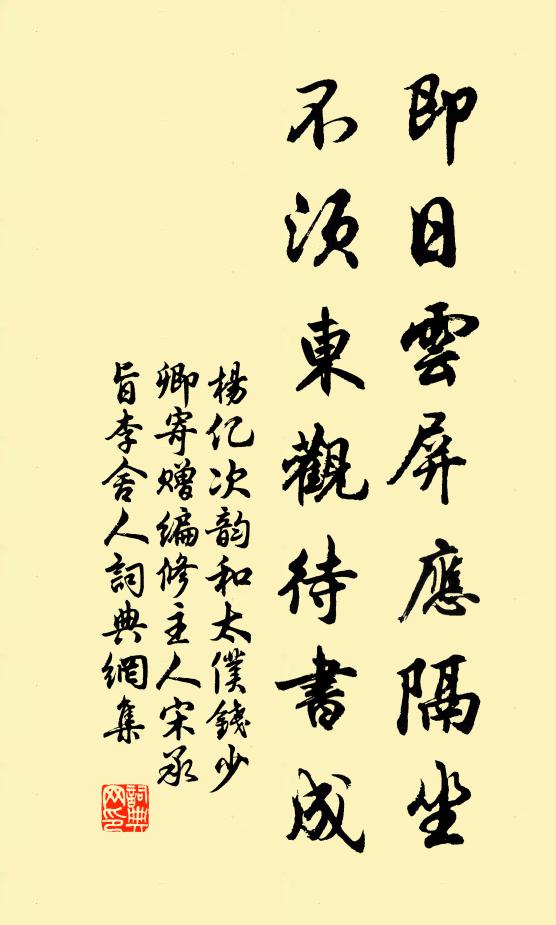 即日雲屏應隔坐
不須東觀待書成
楊亿次韵和太僕錢少
卿寄贈编修主人宋承
旨李舍人詞典網集
詞典网印